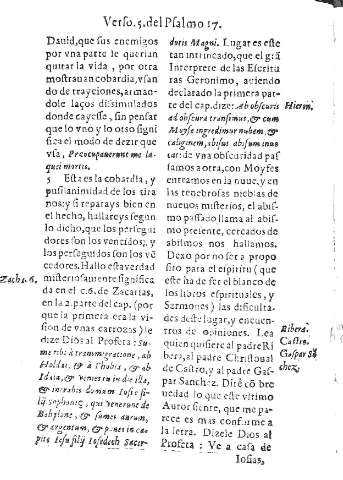 Verso. 5. del Psalmo 17.
Dauid, que sus enemigos
por vna parte le querian
quitar la vida, por otra
mostrauan cobardia, vsan
do de trayciones, arman-
dole laços dissimulados
donde cayesse, sin pensar
que lo vno y lo otro signi
fica el modo de dezir que
vsa, Præocupauerunt me la-
quei mortis.
5 Esta es la cobardia, y
pusilanimidad de los tira
nos: y si reparays bien en
el hecho, hallareys segun
lo dicho, que los persegui
dores son los vencidos, y
los perseguidos son los vẽ
cedores. Hallo esta verdad
mysteriosamente significa
da en el c. 6. de Zacarias,
en la 2. parte del cap. (por
que la primera era la vi-
sion de vnas carrozas) le
dize Dios al Profeta: Su-
me tibi à transmigratione, ab
Holdai, & à Thobia, & ab
Idaia, & venies tu in die illa,
& intrabis domum Iosiæ fi-
lij Sophoniæ, qui venerunt de
Babylone, & sumes aurum,
& argentum, & pones in ca-
pite Iesu filij Iosedech Sacer-
Zach. 6.
dotis Magni. Lugar es este
tan intricado, que el grã
Interprete de las Escritu
ras Geronimo, auiendo
declarado la primera par-
te del cap. dize: Ab obscuris
ad obscura transimus, & cum
Moyse ingredimur nubem, &
caliginem, abisus abisum inuo
cat: de vna obscuridad pas
samos a otra, con Moyses
entramos en la nuue, y en
las tenebrosas nieblas de
nueuos misterios, el abis-
mo passado llama al abis-
mo presente, cercados de
abismos nos hallamos.
Dexo por no ser a propo
sito para el espiritu (que
este ha de ser el blanco de
los libros espirituales, y
Sermones) las dificulta-
des deste lugar, y encuen-
tros de opiniones. Lea
quien quisiere al padre Ri
bera, al padre Christoual
de Castro, y al padre Gas-
par Sanchez. Dirè cõ bre
uedad lo que este vltimo
Autor siente, que me pa-
rece es mas conforme a
la letra. Dizele Dios al
Profeta: Ve a casa de
Iosias,
Hieron.
Ribera.
Castro.
Gaspar Sã
chez.